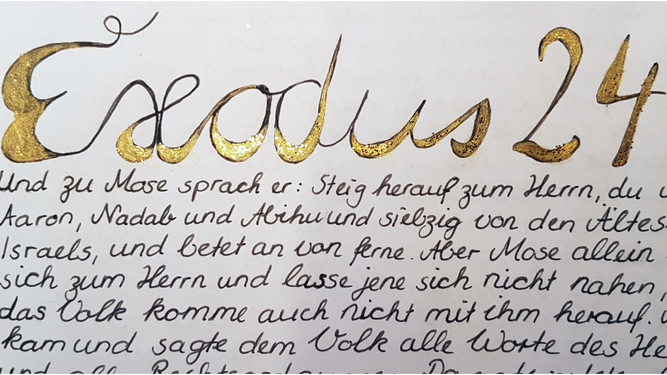 Exodus 24
Und zu Mose sprach er: Steig herauf zum Herrn, du
Aaron, Nadab und Abihu und siebzig von den Ältes
Israels, und betet an von ferne. Aber Mose allein
sich zum Herrn und lasse jene sich nicht nahen,
das Volk komme auch nicht mit ihm herauf.
kam und sagte dem Volk alle Worte des He